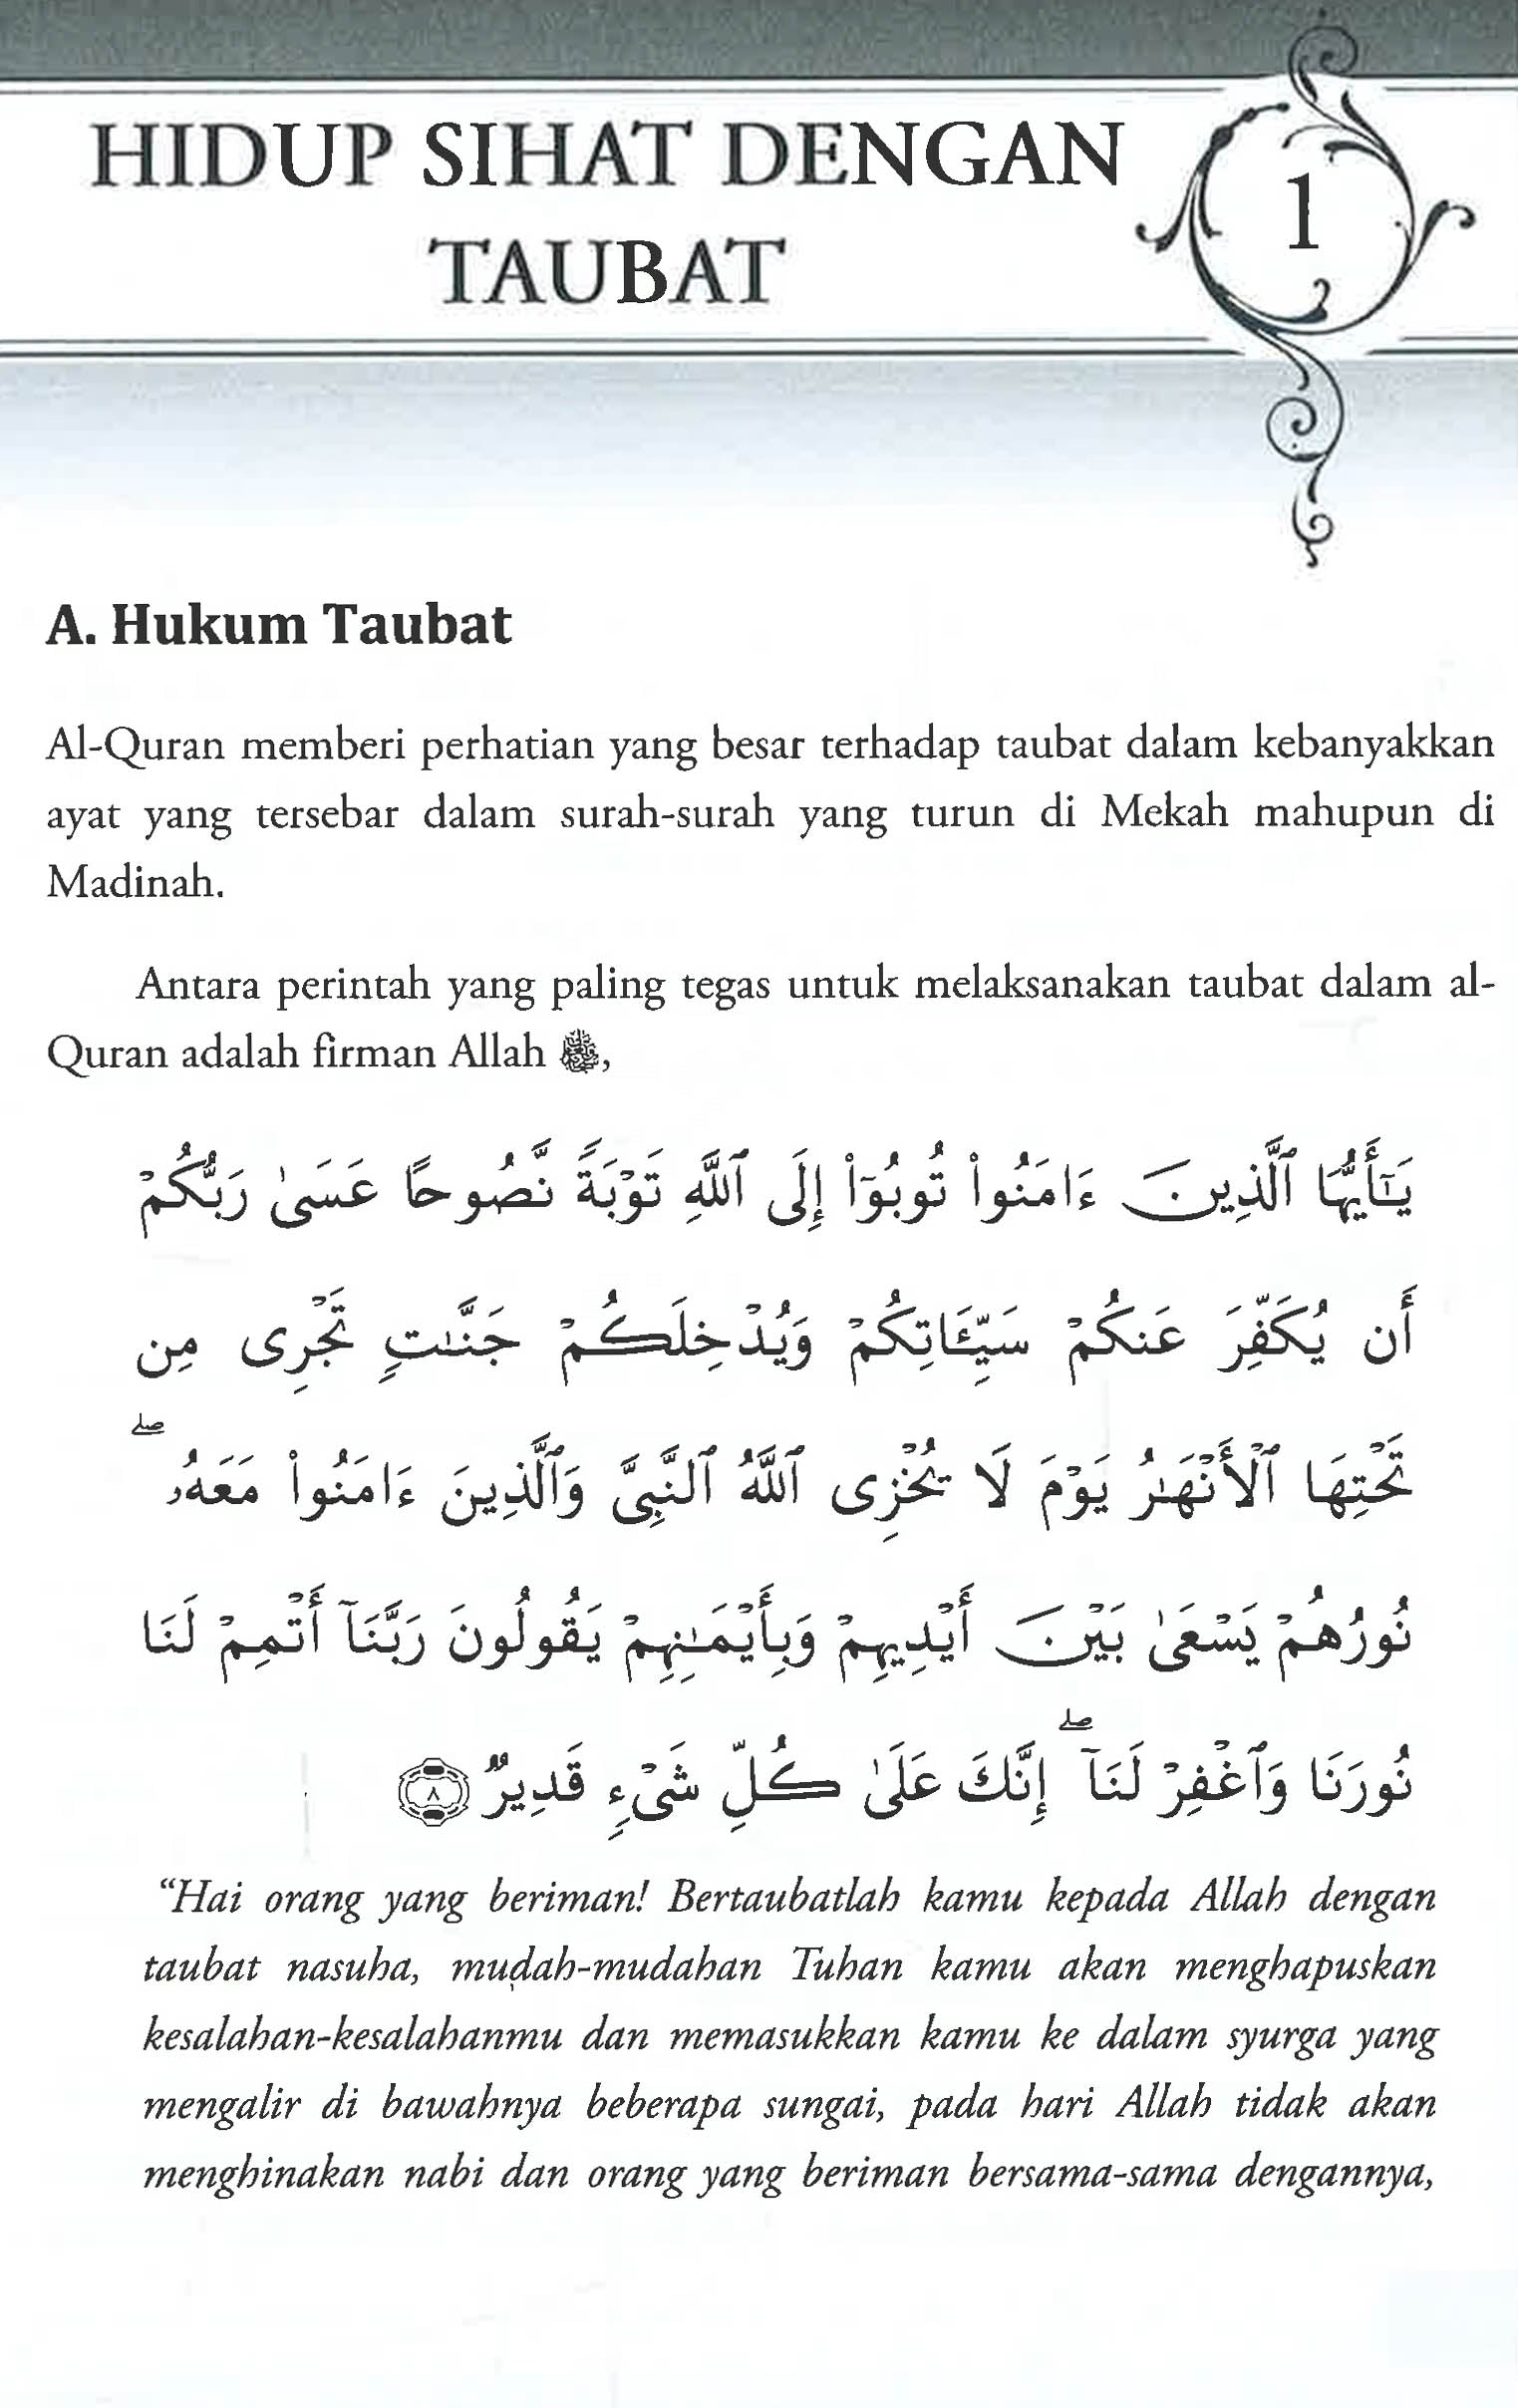 HIDUP SIHAT DENGAN
TAUBAT
1
A. Hukum Taubat
Al-Quran memberi perhatian yang besar terhadap taubat dalam kebanyakkan
ayat yang tersebar dalam surah-surah yang turun di Mekah mahupun di
Madinah.
Antara perintah yang paling tegas untuk melaksanakan taubat dalam al-
Quran adalah firman Allah ﷻ,
يَـٰٓأَيُّهَا ٱلَّذِينَ ءَامَنُوا۟ تُوبُوٓا۟ إِلَى ٱللَّهِ تَوْبَةً نَّصُوحًا عَسَىٰ رَبُّكُمْ
أَن يُكَفِّرَ عَنكُمْ سَيِّـَٔاتِكُمْ وَيُدْخِلَكُمْ جَنَّـٰتٍ تَجْرِى مِن
تَحْتِهَا ٱلْأَنْهَـٰرُ يَوْمَ لَا يُخْزِى ٱللَّهُ ٱلنَّبِىَّ وَٱلَّذِينَ ءَامَنُوا۟ مَعَهُۥ ۖ
نُورُهُمْ يَسْعَىٰ بَيْنَ أَيْدِيهِمْ وَبِأَيْمَـٰنِهِمْ يَقُولُونَ رَبَّنَآ أَتْمِمْ لَنَا
نُورَنَا وَٱغْفِرْ لَنَآ ۖ إِنَّكَ عَلَىٰ كُلِّ شَىْءٍ قَدِيرٌ ٨
“Hai orang yang beriman! Bertaubatlah kamu kepada Allah dengan
taubat nasuha, mudah-mudahan Tuhan kamu akan menghapuskan
kesalahan-kesalahanmu dan memasukkan kamu ke dalam syurga yang
mengalir di bawahnya beberapa sungai, pada hari Allah tidak akan
menghinakan nabi dan orang yang beriman bersama-sama dengannya,